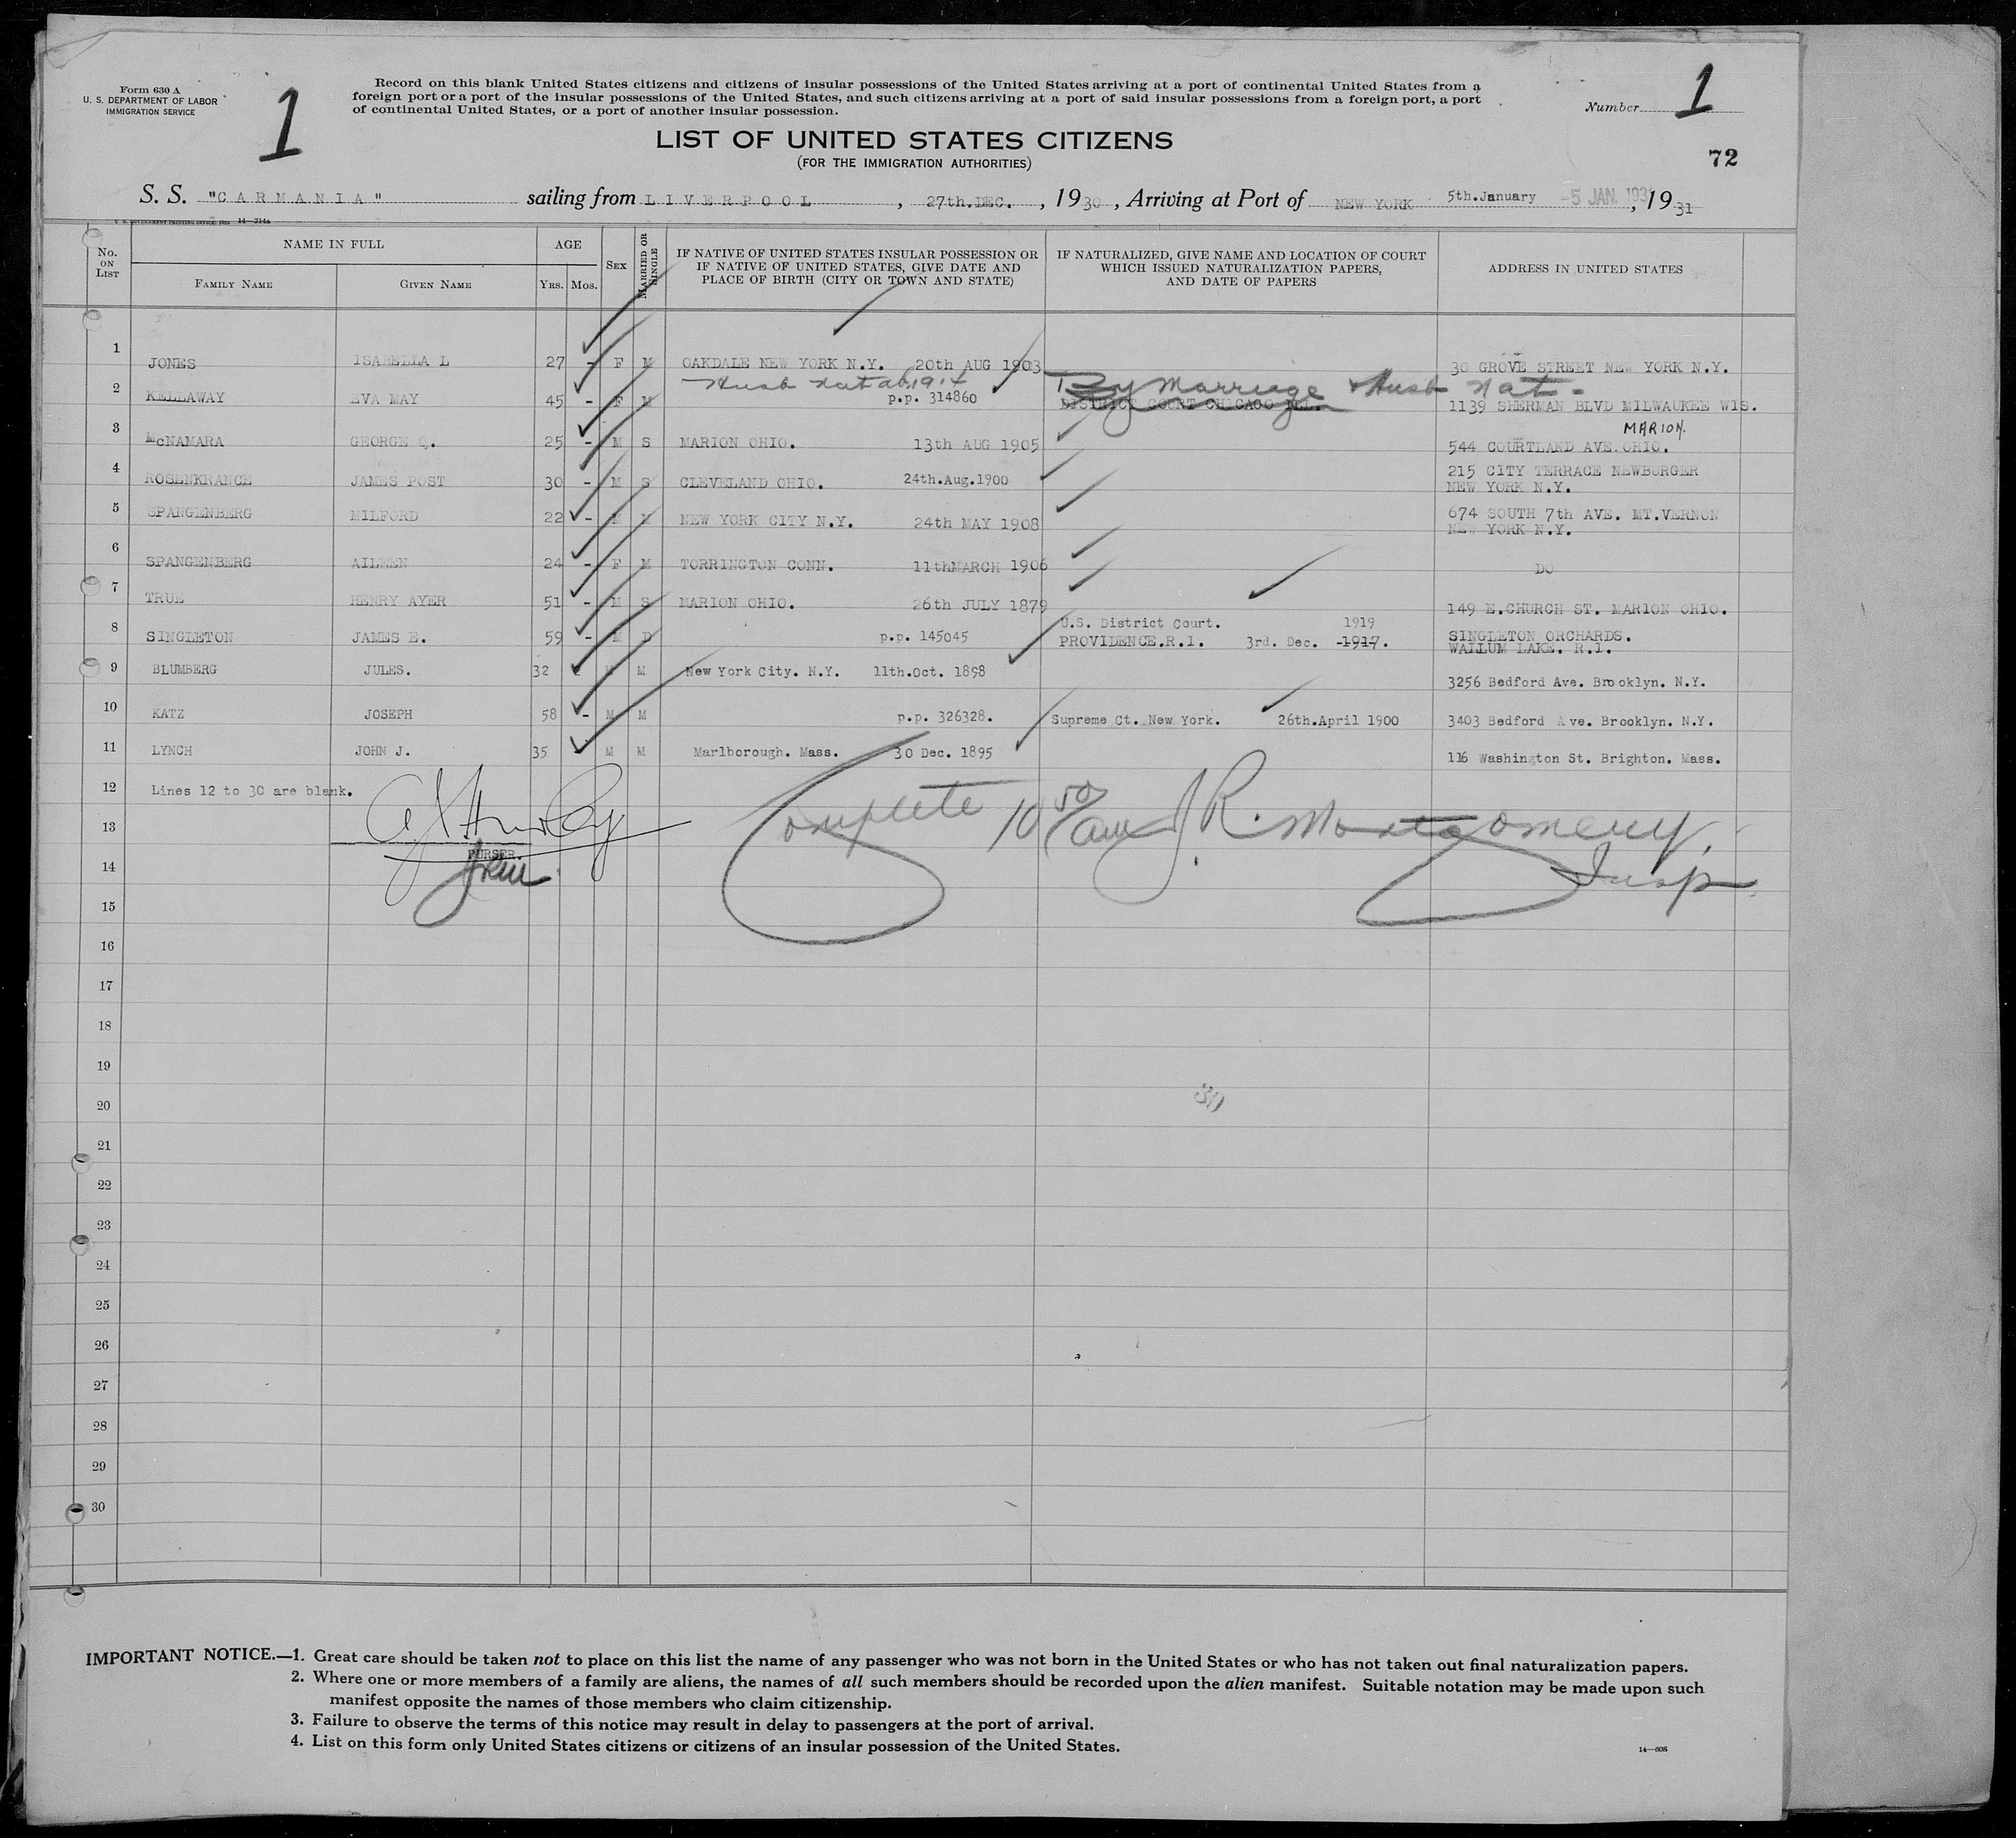 Form 630 A
U. S. DEPARTMENT OF LABOR
IMMIGRATION SERVICE
1
Record on this blank United States citizens and citizens of insular possessions of the United States arriving at a port of continental United States from a
foreign port or a port of the insular possessions of the United States, and such citizens arriving at a port of said insular possessions from a foreign port, a port
of continental United States, or a port of another insular possession.
Number 1
LIST OF UNITED STATES CITIZENS
(FOR THE IMMIGRATION AUTHORITIES)
72
S. S. "CARMANIA" sailing from LIVERPOOL, 27th.DEC., 1930, Arriving at Port of NEW YORK 5th.January -5 JAN. 193, 1931
14-214a
No. ON LIST
NAME IN FULL
FAMILY NAME GIVEN NAME
AGE
YRS. MOS.
SEX
MARRIED OR SINGLE
IF NATIVE OF UNITED STATES INSULAR POSSESSION OR
IF NATIVE OF UNITED STATES, GIVE DATE AND
PLACE OF BIRTH (CITY OR TOWN AND STATE)
IF NATURALIZED, GIVE NAME AND LOCATION OF COURT
WHICH ISSUED NATURALIZATION PAPERS,
AND DATE OF PAPERS
ADDRESS IN UNITED STATES
1 JONES ISABELLA L 27 - F M OAKDALE NEW YORK N.Y. 20th AUG 1903 30 GROVE STREET NEW YORK N.Y.
Husb nat ab. 1914 By marriage Husb Nat-
2 KELLAWAY EVA MAY 45 - F M p.p. 314860 DISTRICT COURT CHICAGO ILL. 1139 SHERMAN BLVD MILWAUKEE WIS.
MARION.
3 McNAMARA GEORGE Q. 25 - M S MARION OHIO. 13th AUG 1905 544 COURTLAND AVE.OHIO.
4 ROSENKRANCE JAMES POST 30 - M S CLEVELAND OHIO. 24th.Aug.1900 215 CITY TERRACE NEWBURGER
NEW YORK N.Y.
5 SPANGENBERG MILFORD 22 - M M NEW YORK CITY N.Y. 24th MAY 1908 674 SOUTH 7th AVE. MT.VERNON
NEW YORK N.Y.
6 SPANGENBERG AILEEN 24 - F M TORRINGTON CONN. 11thMARCH 1906 DO
7 TRUE HENRY AYER 51 - M S MARION OHIO. 26th JULY 1879 149 E.CHURCH ST. MARION OHIO.
U.S. District Court. 1919
8 SINGLETON JAMES E. 59 - M D p.p. 145045 PROVIDENCE.R.I. 3rd. Dec. -1917. SINGLETON ORCHARDS.
WALLUM LAKE. R.I.
9 BLUMBERG JULES. 32 M M New York City. N.Y. 11th.Oct. 1898 3256 Bedford Ave. Brooklyn. N.Y.
10 KATZ JOSEPH 58 - M M p.p. 326328. Supreme Ct. New York. 26th.April 1900 3403 Bedford Ave. Brooklyn. N.Y.
11 LYNCH JOHN J. 35 M M Marlborough. Mass. 30 Dec. 1895 116 Washington St. Brighton. Mass.
12 Lines 12 to 30 are blank.
13 Complete 10 50 am J R. Montgomery.
PURSER.
14 Insp
JRM
15
16
17
18
19
20
30
21
22
23
24
25
26
27
28
29
30
IMPORTANT NOTICE.—1. Great care should be taken not to place on this list the name of any passenger who was not born in the United States or who has not taken out final naturalization papers.
2. Where one or more members of a family are aliens, the names of all such members should be recorded upon the alien manifest. Suitable notation may be made upon such
manifest opposite the names of those members who claim citizenship.
3. Failure to observe the terms of this notice may result in delay to passengers at the port of arrival.
4. List on this form only United States citizens or citizens of an insular possession of the United States.
14—808